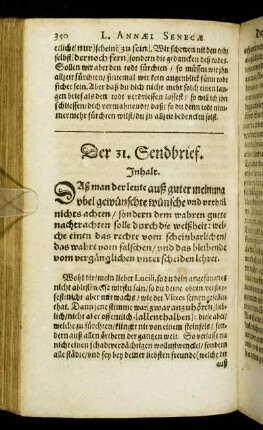 350 L. ANNÆI SENECÆ
etliche nur [scheinē zu sein]. Wir schewen nit den todt
selbst / der noch fern / sondern die gedancken deß todes.
Sollen wir aber den todt fürchten / so müssen wir jhn
allzeit fürchten / sittemal wir kein augenblick für jhm
sicher sein. Aber daß du dich nicht mehr solch einen lan-
gen brief als den todt verdriessen lassest / so will ich jhn
schliessen / dich vermahnende / daß / so du denn todt nim-
mermehr fürchten wilst / du jhn allzeit bedencken solst.
Der 31. Sendbrief.
Inhalt.
DAß man der leute auß guter meinung
vbel gewünschte wünsche vnd vrtheil
nichts achten / sondern dem wahren gute
nachtrachten solle durch die weißheit: wel-
che einen das rechte vom scheinbarlichen /
das wahre vom falschen / vnd das bleibende
vom vergänglichen vnterscheiden lehret.
Wohl dir / mein lieber Lucili / so du dein angefangenes
nicht ablässest
nicht aber mit wachs / wie der Vlixes seinen gesellen
that. Dann jene stimme war zwar anzuhören lieblich /
nicht aber öffentlich [allenthalben]: diese aber /
welche zu fürchten / klingt nit von einem steinfels / son-
dern auß allen örthern der gantzen welt. So verlasse nu
nicht einen schadverdächtigen wollustwinckel / sondern
alle städte / vnd sey bey deiner liebsten freunde (welche dir
auß